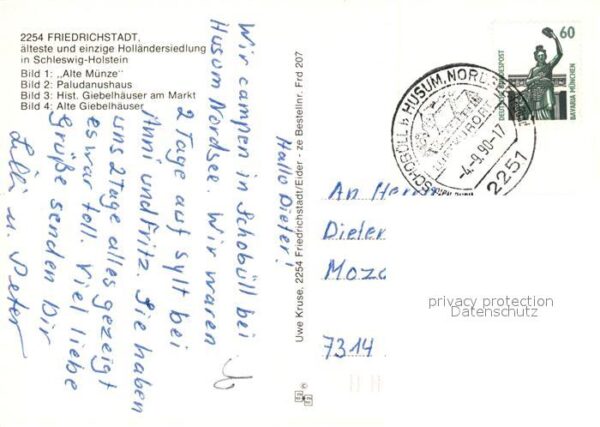 2254 FRIEDRICHSTADT,
älteste und einzige Holländersiedlung
in Schleswig-Holstein
Bild 1: „Alte Münze"
Bild 2: Paludanushaus
Bild 3: Hist. Giebelhäuser am Markt
Bild 4: Alte Giebelhäuser
Hallo Dieter!
Wir campen in Schobüll bei
Husum Nordsee. Wir waren
2 Tage auf Sylt bei
Anni und Fritz. Sie haben
uns 2 Tage alles gezeigt
es war toll. Viel liebe
Grüße senden Dir
Lilli u. Peter
Uwe Kruse, 2254 Friedrichstadt/Eider - ze Bestellnr. Frd 207
SCHOBÜLL b HUSUM, NORDSEE
LUFTKURORT
-4.-9.90-17
2251
60
DEUTSCHE BUNDESPOST
BAVARIA MÜNCHEN
An Herrn
Dieter
Moza
7314
privacy protection
Datenschutz